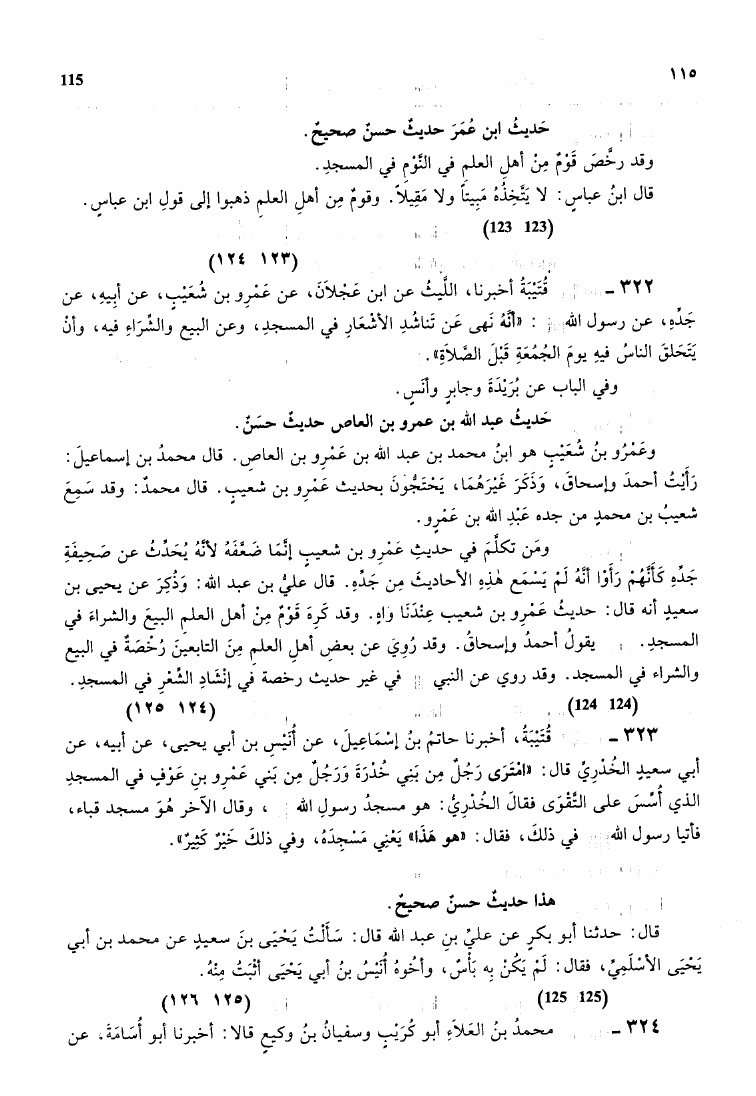 115 ١١٥
حَديثُ ابن عُمَرَ حديثٌ حسنٌ صحيحٌ.
وقد رخَّصَ قَوْمٌ مِنْ أهلِ العلمِ في النَّوْمِ في المسجدِ.
قال ابنُ عباسٍ: لا يَتَّخِذُهُ مَبِيتاً ولا مَقِيلاً. وقومٌ مِن أهلِ العلمِ ذهبوا إلى قولِ ابن عباسٍ.
(123 123)
(١٢٣ ١٢٤)
٣٢٢ ـ قُتَيْبَةُ أخبرنا، اللَّيثُ عن ابن عَجْلاَنَ، عن عَمْرِو بن شُعَيْبٍ، عن أبيهِ، عن
جَدِّهِ، عن رسول الله : «أنَّهُ نَهى عَن تَناشُدِ الأشْعَارِ في المسجدِ، وعن البيعِ والشِّرَاءِ فيه، وأنْ
يَتَحَلَّقَ الناسُ فِيهِ يومَ الجُمُعَةِ قَبْلَ الصَّلاَةِ».
وفي الباب عن بُرَيْدَةَ وجابرٍ وأنَسٍ.
حَديثُ عبد الله بن عمرو بن العاص حديثٌ حسَنٌ.
وعَمْرُو بنُ شُعَيْبٍ هو ابنُ محمد بن عبد الله بن عَمْرِو بن العاصِ. قال محمدُ بن إسماعيلَ:
رَأَيْتُ أحمدَ وإسحاقَ، وَذَكَرَ غَيْرَهُمَا، يَحْتَجُّونَ بحديث عَمْرِو بن شعيبٍ. قال محمدٌ: وقد سَمِعَ
شعيبُ بن محمدٍ من جده عَبْدِ الله بن عَمْرٍو.
ومَن تكلَّمَ في حديثِ عَمْرِو بن شعيبٍ إنَّمَا ضَعَّفَهُ لأنَّهُ يُحَدِّثُ عن صَحِيفَةِ
جَدِّهِ كَأَنَّهُمْ رَأَوْا أنَّهُ لَمْ يَسْمَع هٰذِهِ الأحاديثَ مِن جَدِّهِ. قال عليُّ بن عبد الله: وَذُكِرَ عن يحيى بن
سعيدٍ أنه قال: حديثُ عَمْرِو بن شعيب عِنْدَنَا واهٍ. وقد كَرِهَ قَوْمٌ مِنْ أهل العلمِ البيعَ والشراءَ في
المسجدِ. يقولُ أحمدُ وإسحاقُ. وقد رُوِيَ عن بعضِ أهلِ العلم مِنَ التابعينَ رُخْصَةٌ في البيع
والشراء في المسجد. وقد روي عن النبي في غير حديث رخصة في إنْشَادِ الشِّعْرِ في المسجدِ.
(124 124) (١٢٤ ١٢٥)
٣٢٣ ـ قُتَيْبَةُ، أخبرنا حاتمُ بنُ إسْمَاعِيلَ، عن أُنَيْسِ بن أبي يحيى، عن أبيه، عن
أبي سعيدٍ الخُدْرِيِّ قال: «امْتَرَى رَجُلٌ مِن بَنِي خُدْرَةَ وَرَجُلٌ مِن بَني عَمْرِو بنِ عَوْفٍ في المسجدِ
الذي أُسِّسَ على التَّقْوَى فقالَ الخُدْرِيُّ: هو مسجدُ رسولِ الله ، وقال الآخر هُوَ مسجد قباء،
فأتيا رسول الله في ذلكَ، فقال: «هو هَذا» يَعْنِي مَسْجِدَهُ، وفي ذلكَ خَيْرٌ كَثِيرٌ».
هذا حديثٌ حسنٌ صحيحٌ.
قال: حدثنا أبو بكرٍ عن عليِّ بنِ عبد الله قال: سَأَلْتُ يَحْيَى بنَ سعيدٍ عن محمد بن أبي
يَحْيَى الأسْلَمِيِّ، فقال: لَمْ يَكُنْ بهِ بَأْسٌ، وأخُوهُ أُنَيْسُ بنُ أبي يَحْيَى أثْبَتُ مِنْهُ.
(125 125) (١٢٥ ١٢٦)
٣٢٤ ـ محمدُ بنُ العَلاَءِ أبو كُرَيْبٍ وسفيانُ بنُ وكيعٍ قالا: أخبرنا أبو أُسَامَةَ، عن